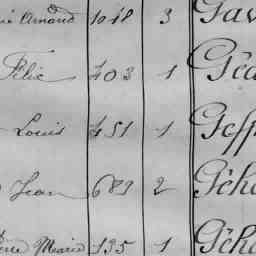 Arnaud 1018 3 Gav
Félix 403 1 Géa
Louis 451 1 Geff
Jean 689 2 Géha
Pierre Marie 135 1 Géha